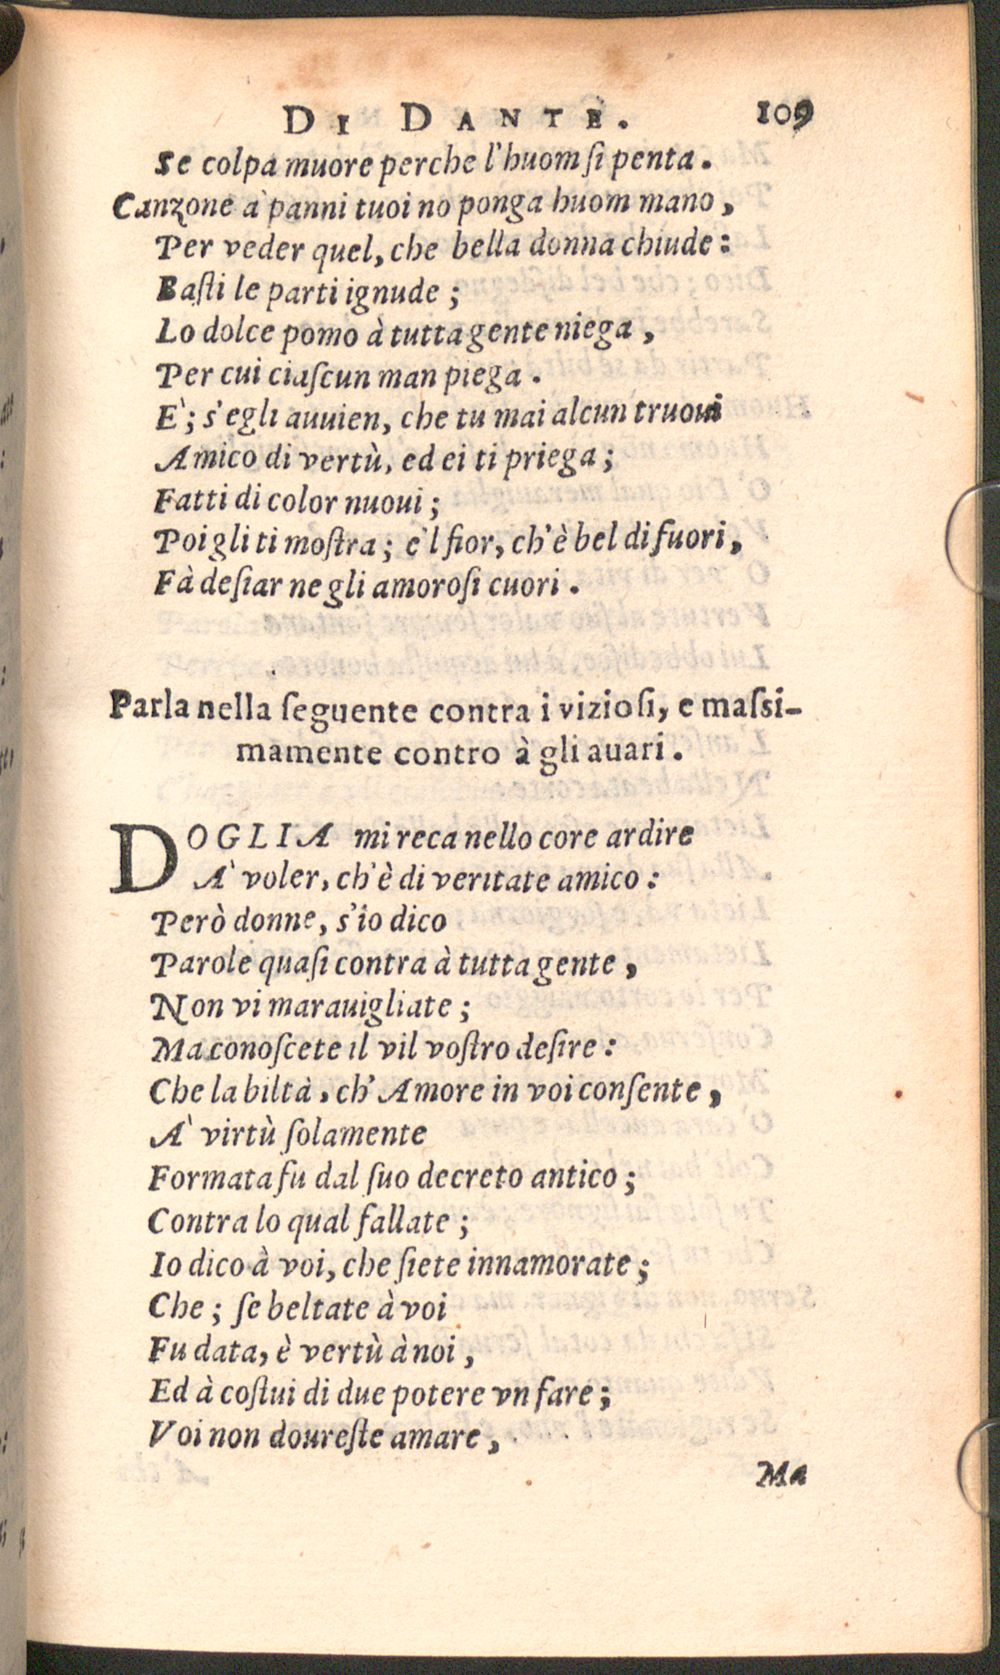 DI DANTE. 109
Se colpa muore perche l'huom ſi penta.
Canzone à panni tuoi no ponga huom mano,
Per veder quel, che bella donna chiude:
Baſti le parti ignude;
Lo dolce pomo à tutta gente niega,
Per cui ciaſcun man piega.
E'; s'egli auuien, che tu mai alcun truoui
Amico di vertù, ed ei ti priega;
Fatti di color nuoui;
Poi gli ti moſtra; e'l fior, ch'è bel di fuori,
Fà deſiar ne gli amoroſi cuori.
Parla nella ſeguente contra i vizioſi, e maſsi-
mamente contro à gli auari.
DOGLIA mi reca nello core ardire
A' voler, ch'è di veritate amico:
Però donne, s'io dico
Parole quaſi contra à tutta gente,
Non vi marauigliate;
Ma conoſcete il vil voſtro deſire:
Che la biltà, ch'Amore in voi conſente,
A' virtù ſolamente
Formata fu dal ſuo decreto antico;
Contra lo qual fallate;
Io dico à voi, che ſiete innamorate;
Che; ſe beltate à voi
Fu data, è vertù à noi,
Ed à coſtui di due potere vn fare;
Voi non doureſte amare,
Ma